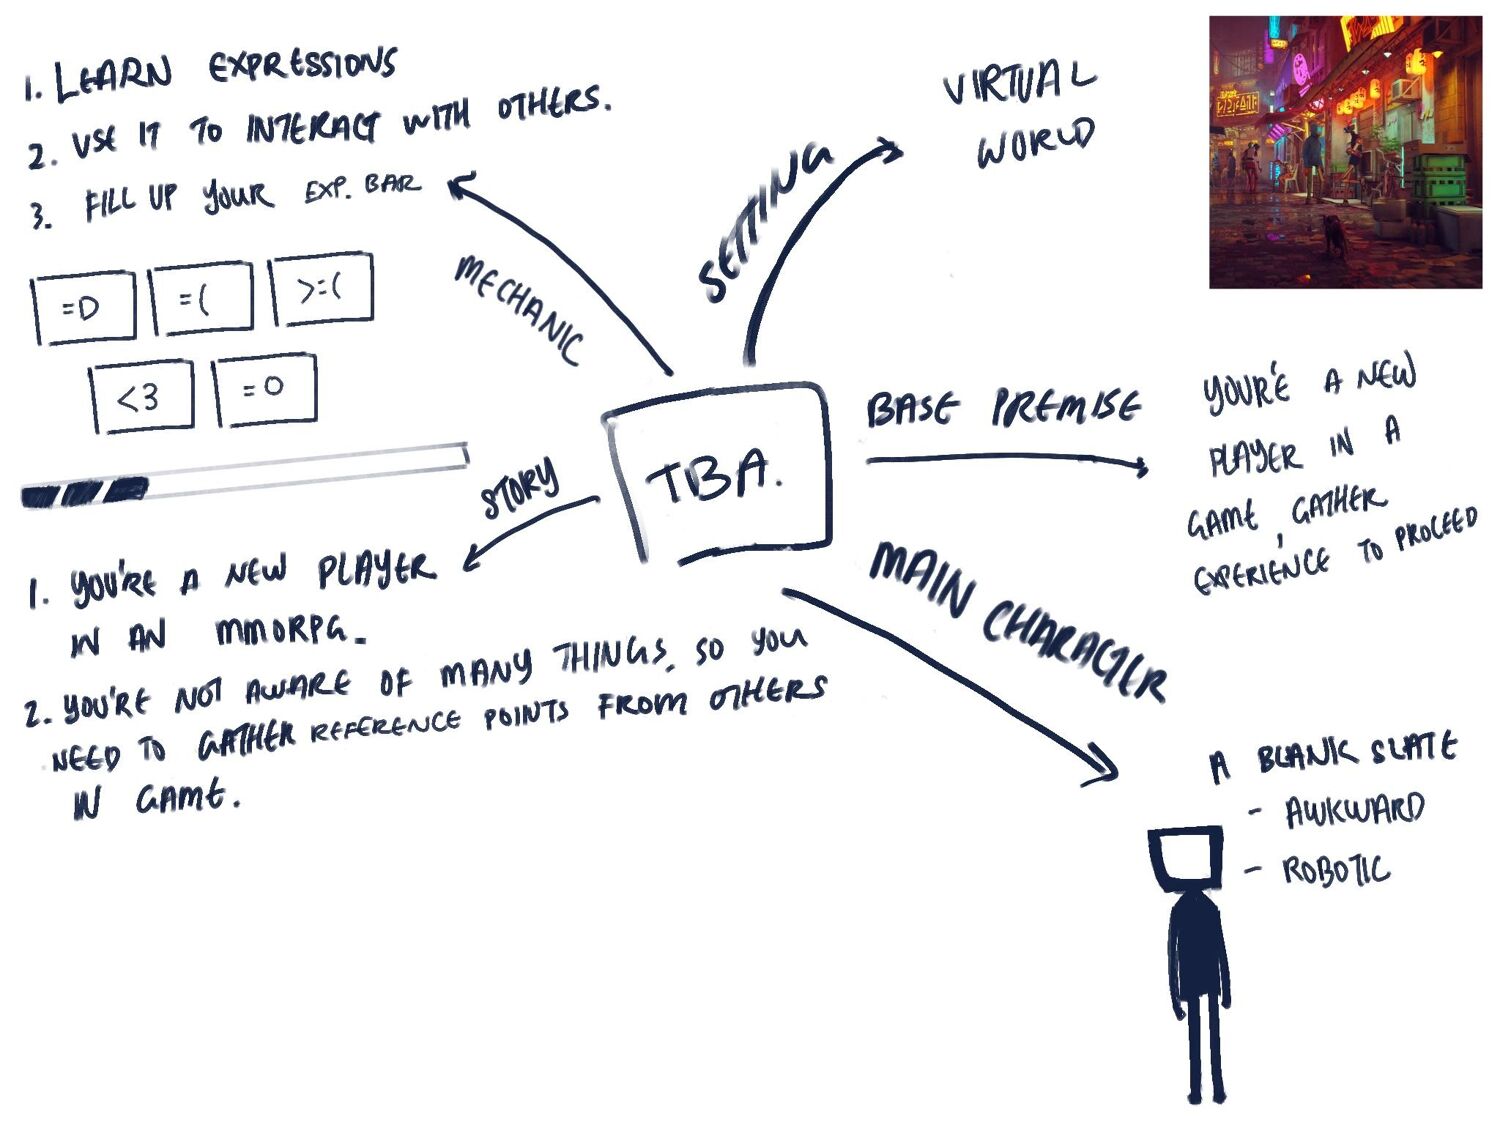 1. LEARN EXPRESSIONS
2. USE IT TO INTERACT WITH OTHERS.
3. FILL UP YOUR EXP. BAR
=D
=(
>=(
<3
=O
MECHANIC
SETTING
VIRTUAL
WORLD
TBA.
BASE PREMISE
YOUR'E A NEW
PLAYER IN A
GAME, GATHER
EXPERIENCE TO PROCEED
STORY
1. YOU'RE A NEW PLAYER
IN AN MMORPG.
2. YOU'RE NOT AWARE OF MANY THINGS, SO YOU
NEED TO GATHER REFERENCE POINTS FROM OTHERS
IN GAME.
MAIN CHARACTER
A BLANK SLATE
- AWKWARD
- ROBOTIC